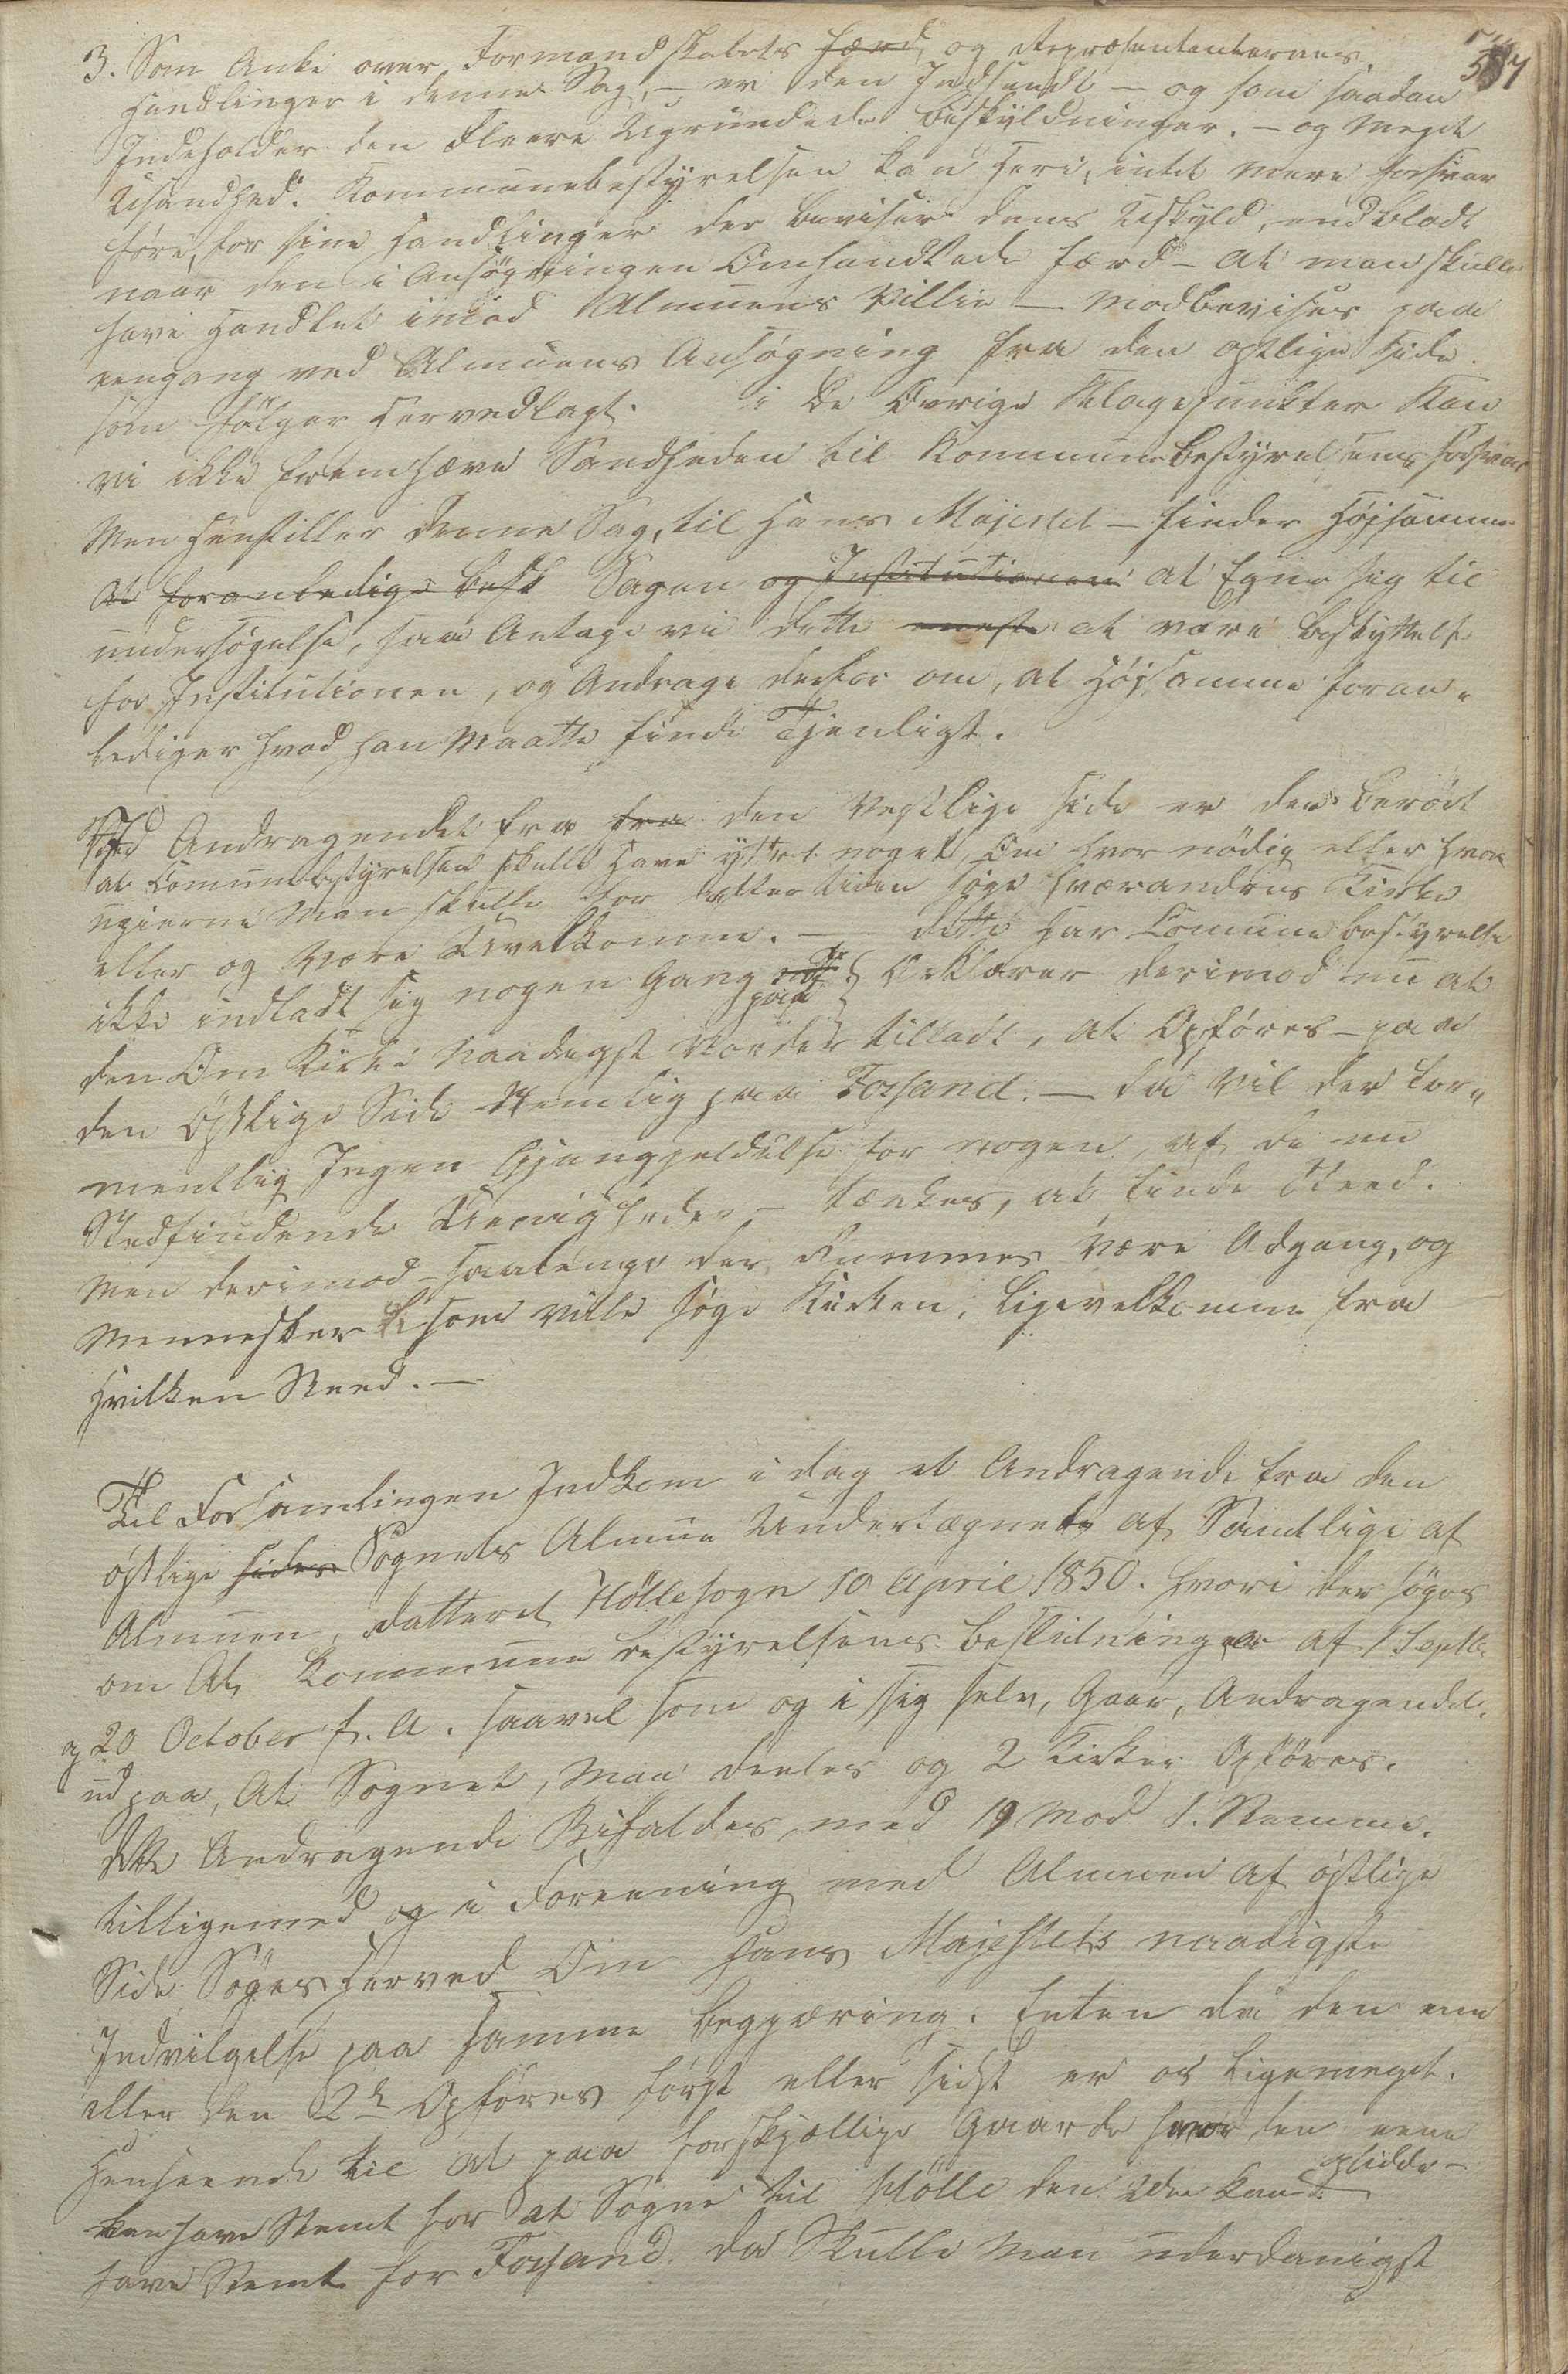 3. Som Anke over Formandskabets færd, og Repræsentanternes
Handlinger i denne Sag, – er den Indsendt – og som saadan
Indeholder den Fleere Ugrundede Beskyldninger. – og Meget
Usandhed. Kommunebestyrelsen kan heri, intet mere forsvar
føre, for sine Handlinger der beviser dens Uskyld, end blodt
naar den i Ansøgningen Omhandlede færd – at man skulle
have Handlet imod Almuens Villie – Modbevises paa
eengang ved Almuens Ansøgning fra den østlige Side
som følger Hervedlagt. i De Øvrige Klagepunkter Kan
vi ikke fremhæve Sandheden til Kommunebestyrelsens forsvar
Men Henstiller denne Sag, til Hans Majestet – finder Højsamme
at foranledige Sagen og Institutionen at Egne sig til
undersøgelse, saa Antage vi dette at være beskyttelse
for Institutionen, og Andrage derfor om, at Højsamme foran-
lediger hvad han Maatte finde Tjenligst.
Ved Andragendet fra fra den Vestlige side er der berørt
at Comunebestyrelsen skulle Have yttret noget, Om hvor nødig eller hvor
ugierne Man skulle for Eftertiden søge hverandres Kirke
eller og Være Uvelkomne. – dette har Comunebestyrelse
ikke indladt sig nogen Gang paa Erklærer derimod nu at
den Om Kirke Naadigst Vorder tilladt, at Opføres – paa
den Østlige Side Nemlig paa Forsand. – da Vil der for-
mentlig Ingen Gjengjeldelse for nogen, af de nu
Stedfindende Uenigheder – tænkes, at finde Sted.
Men derimod – saalænge der Rummes Være Adgang, og
Mennesker som ville søge Kirken, ligevelkomne fra
Hvilken Steed. –
Til Forsamlingen Indkom i dag et Andragende fra den
østlige sides Sognets Almue Undertægnede af Samtlige af
Almuen, datteret Høllesogn 10 April 1850. hvori der søges
om At, Kommunebestyrelsens beslutninger af 1 Septb.
og 20 October f. A. saavel som og i sig selv, Gaar, Andragendet
ud paa, At Sognet, Maa deeles og 2 Kirker Opføres.
dette Andragende Bifaldes med 19 Mod 1. Stemme.
tilligemed og i Foreening med Almuen af østlige
Side Søges Herved Om Hans Majestets naadigste
Indvilgelse paa Samme begjæring. Enten da den ene
eller den 2den Opføres først eller sidst er os Ligemeget.
Henseende til at paa forskjællige Gaarde hvor den eene
kan have Stemt for at Sogne til Hölle den 2den kan
have Stemt for Forsand. da Skulle Man underdanigst